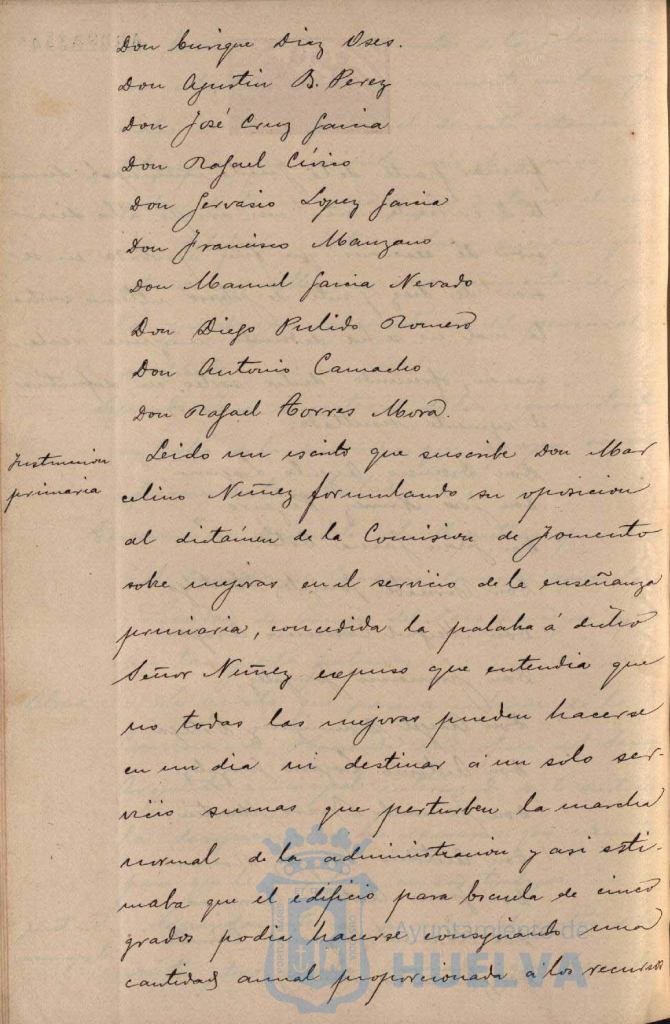 Don Enrique Diaz Oses.
Don Agustin B. Perez
Don José Cruz Garcia
Don Rafael Cívico
Don Gervasio Lopez Garcia
Don Francisco Manzano
Don Manuel Garcia Nevado
Don Diego Pulido Romero
Don Antonio Camacho
Don Rafael Torres Mora.
Instruccion
primaria
Leido un escrito que suscribe Don Mar
celino Nuñez formulando su oposicion
al dictámen de la Comision de Fomento
sobre mejoras en el servicio de la enseñanza
primaria, concedida la palabra á dicho
Señor Nuñez expuso que entendia que
no todas las mejoras pueden hacerse
en un dia ni destinar á un solo ser-
vicio sumas que perturben la marcha
normal de la administracion y asi esti-
maba que el edificio para Escuela de cinco
grados podia hacerse consignando una
cantidad anual proporcionada a los recursos
Ayuntamiento de
HUELVA